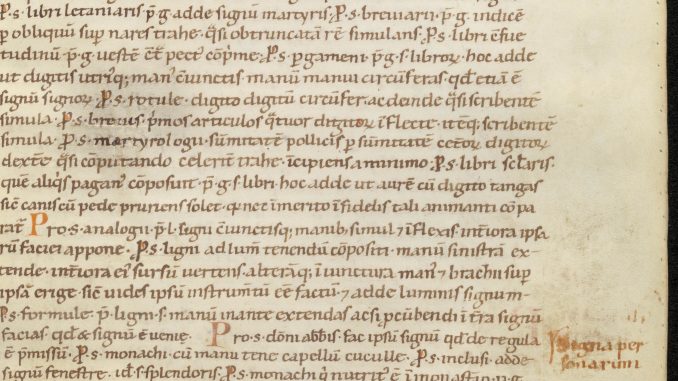 P̱. s. libri letaniaris p̄. g. adde signū martyris. P̱. s. breviarii. p̄. g. indicē
p obliquū sup nares trahe. q̄si obtruncatā rē simulans. P̱. s. libri ēsue
tudinū. p̄. g. vestē ēt pect cōprme. P̱. s. pgameni. p̄. g. s. libroꝝ. hoc adde
ut digitis utriq; man' ēiunctis. manū manui circūferas. qd etiā ē
signū signoꝝ. P̱. s. rotule. digito digitū circūfer. ac deinde q̄si scribentē
simula. P̱. s. brevis. pmos articulos q̄tuor digitoꝝ īflecte. itēq; scribentē
simula. P̱. s. martyrologii. sūmitatē pollicis p sūmitatē cētoꝝ digitoꝝ
dexterę. q̄si cōputando celerit trahe. īcipiens a minimo. P̱. s. libri sclaris.
quē aliq̇s pagan' cōpofuit. p̄. g. s. libri. hoc adde ut aurē cū digito tangas
sic caniscū pede pruriens solet. q̇ nec īmerito īfidelis tali animanti cōpa
rat'. Pro. s. analogii. p̄. l. signi ēiunctisq; manib; simul ⁊ īflexis intiora ipsa
rū faciei appone. P̱. s. ligni ad lum tenendū cōpositi. manū sinistrā ex
tende. intiora ei' sursū vertens. alterāq; ī iunctura man' ⁊ brachii sup
ipsā erige. sic vides ipsū instrum̄tū eē factū. ⁊ adde luminis signum.
P̱. s. formule. p̄. ligni. s. manū inante extendas acsi pcūbendi ī t̄rā signū
facias. qd & signū ē venie. Pro. s. dōni abbis. fac ipsū signū qd de regula
ē p̄missū. P̱. s. monachi. cū manu tene capellū cuculle. P̱. s. inclusi. adde
signū fenestre. id s. splendoris. P̱. s. monachi q̇ nutrit' ē ī monastio. p̄. g.
Signa per
sonarum